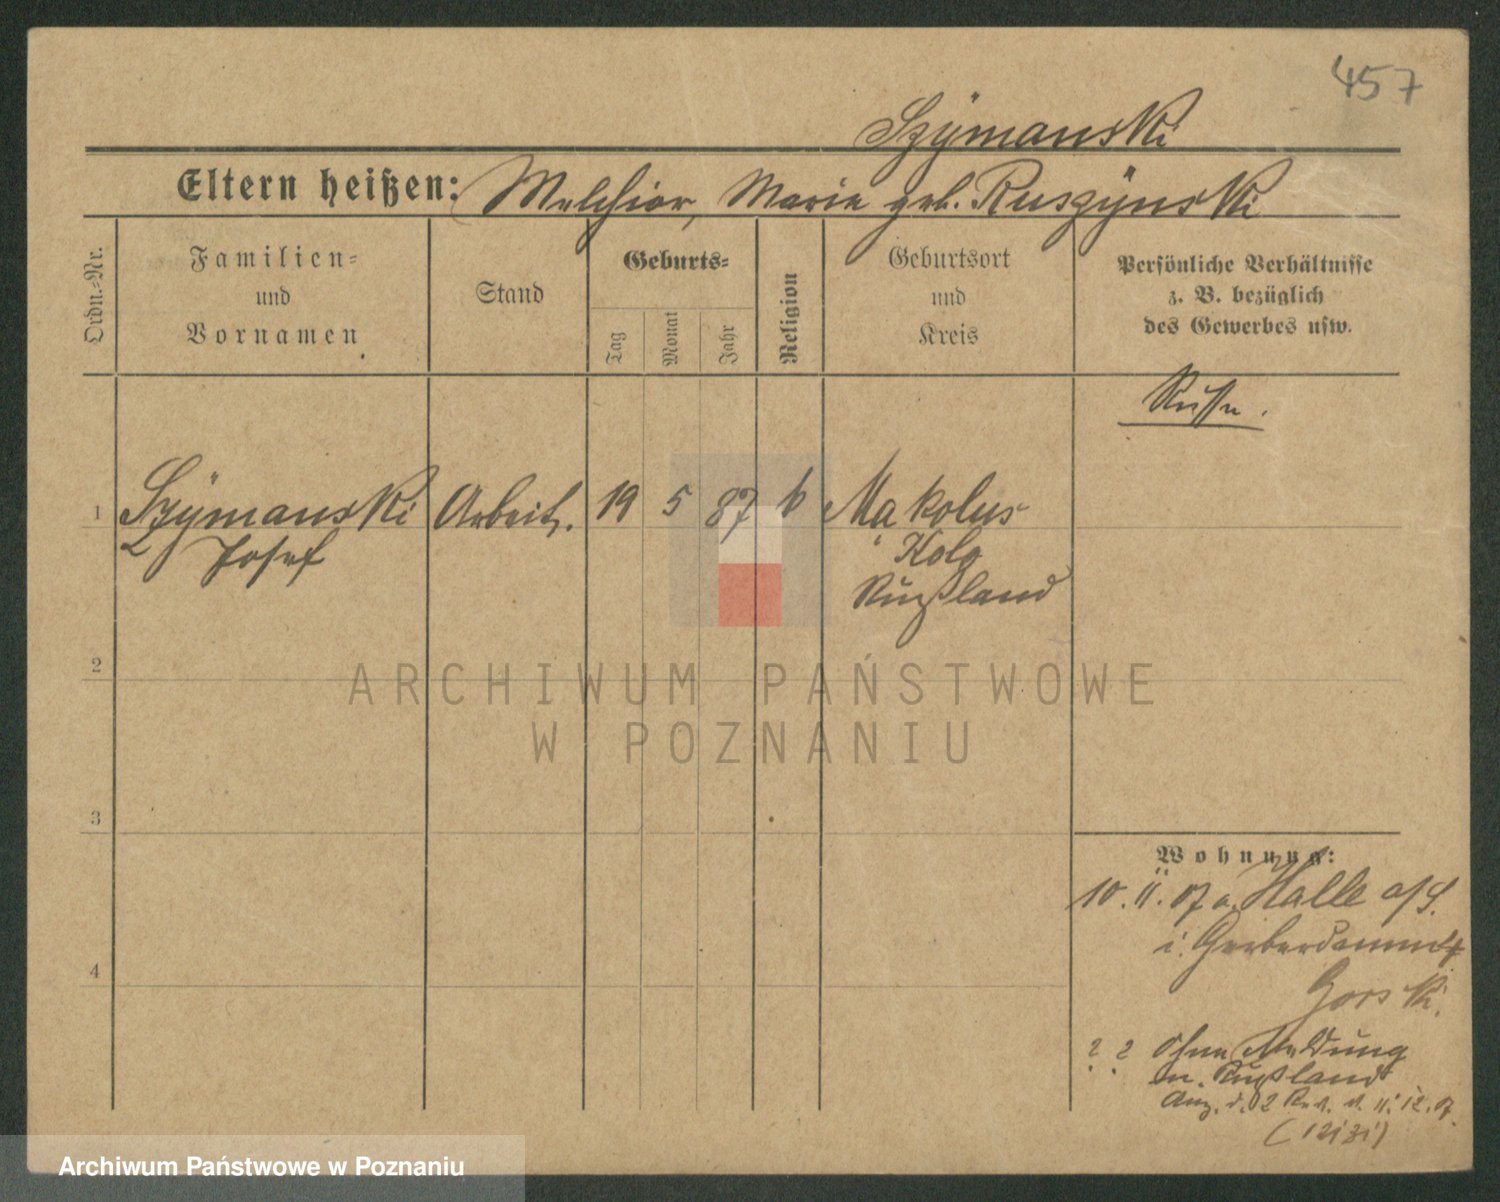 457
Szÿmanski
Eltern heißen: Melchior, Marie geb. Ruszÿnski
Ordn.-Nr.
Familien-
und
Vornamen
Stand
Geburts-
Tag
Monat
Jahr
Religion
Geburtsort
und
Kreis
Persönliche Verhältnisse
z. B. bezüglich
des Gewerbes usw.
Russe.
1 Szÿmanski Arbeit. 19 5 87 k Makolus
Josef Kolo
Rußland
2
3
4
Wohnung:
10. 11. 07 a. Halle a/S.
i. Gerberdamm
Gorski.
? ? ohne Meldung
n. Rußland
Anz. d. 2 Rev. v. 11.12.07.
ARCHIWUM PAŃSTWOWE
W POZNANIU
Archiwum Państwowe w Poznaniu